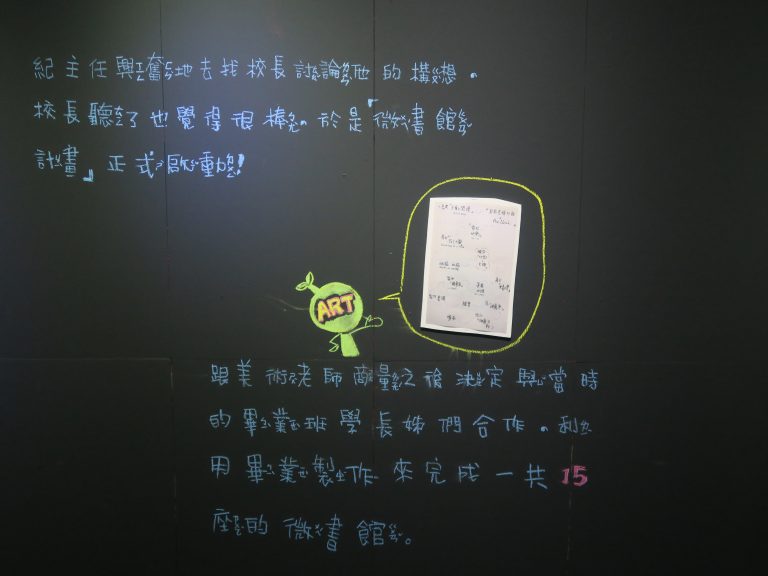 紀主任興奮地去找校長討論他的構想。
校長聽了也覺得很棒。於是「微書館
計畫」正式啟動！
ART
跟美術老師商量之後決定與當時
的畢業班學長姊們合作。利
用畢業製作來完成一共15
座的微書館。